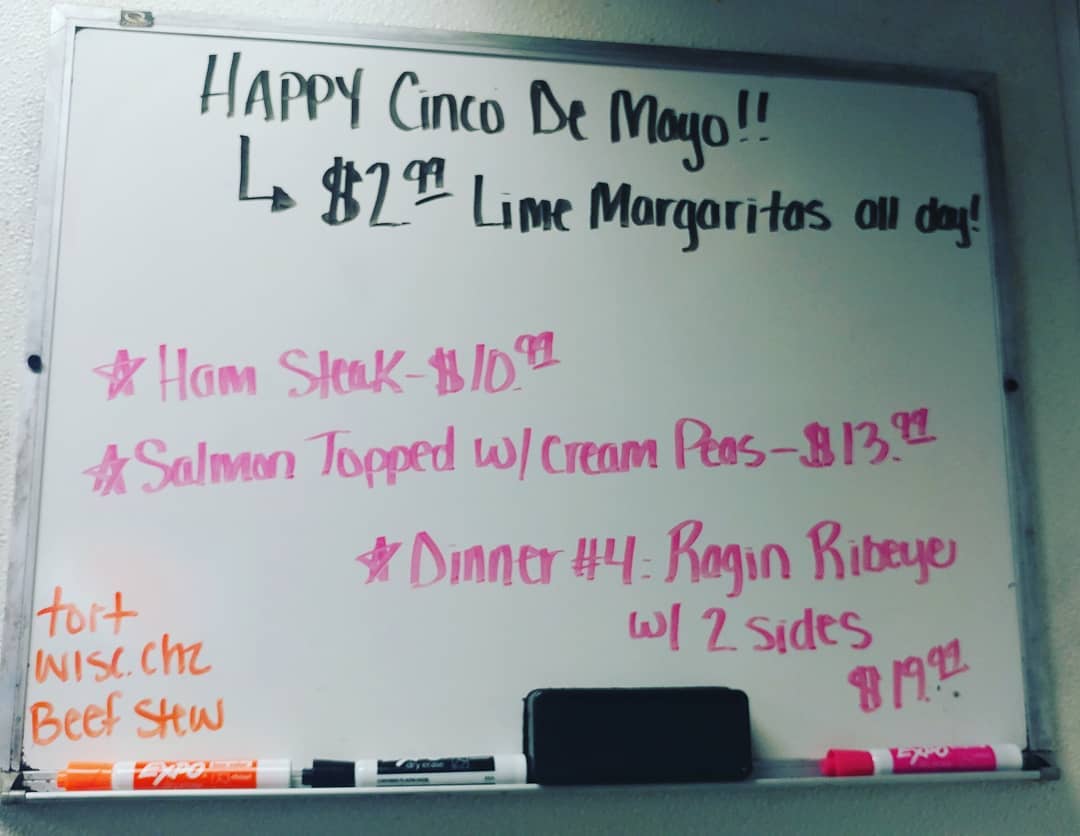 HAPPY Cinco De Mayo!!
↳ $2.99 Lime Margaritas all day!
☆ Ham Steak - $10.99
☆ Salmon Topped w/ Cream Peas - $13.99
☆ Dinner #4: Ragin Ribeye
w/ 2 sides
$19.99
tort
wisc. chz
Beef Stew
EXPO
dry erase
EXPO